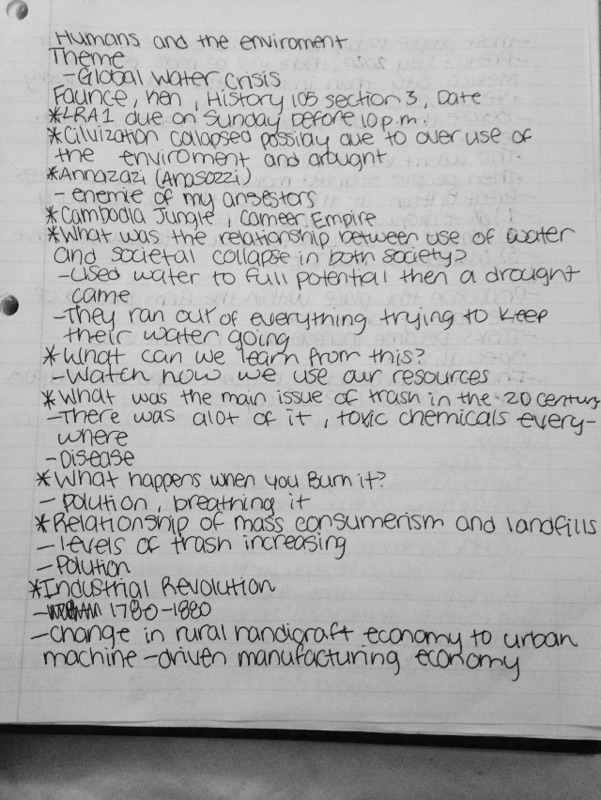 Humans and the enviroment
Theme
- Global Water Crisis
Faunce, Ken, History 105 section 3, Date
*LRA1 due on Sunday before 10 p.m.
*Civilization collapsed possibly due to over use of
the enviroment and drought
*Annazazi (Anasozzi)
- enemie of my ansestors
*Cambodia Jungle, Cameer Empire
*What was the relationship between use of water
and societal collapse in both society?
- Used water to full potential then a drought
came
- They ran out of everything trying to keep
their water going
*What can we learn from this?
- Watch how we use our resources
*What was the main issue of trash in the 20 century
- There was alot of it, toxic chemicals every-
where
- Disease
*What happens when you Burn it?
- Polution, breathing it
*Relationship of mass consumerism and landfills
- levels of trash increasing
- Polution
*Industrial Revolution
- 1780-1880
- change in rural handicraft economy to urban
machine-driven manufacturing economy